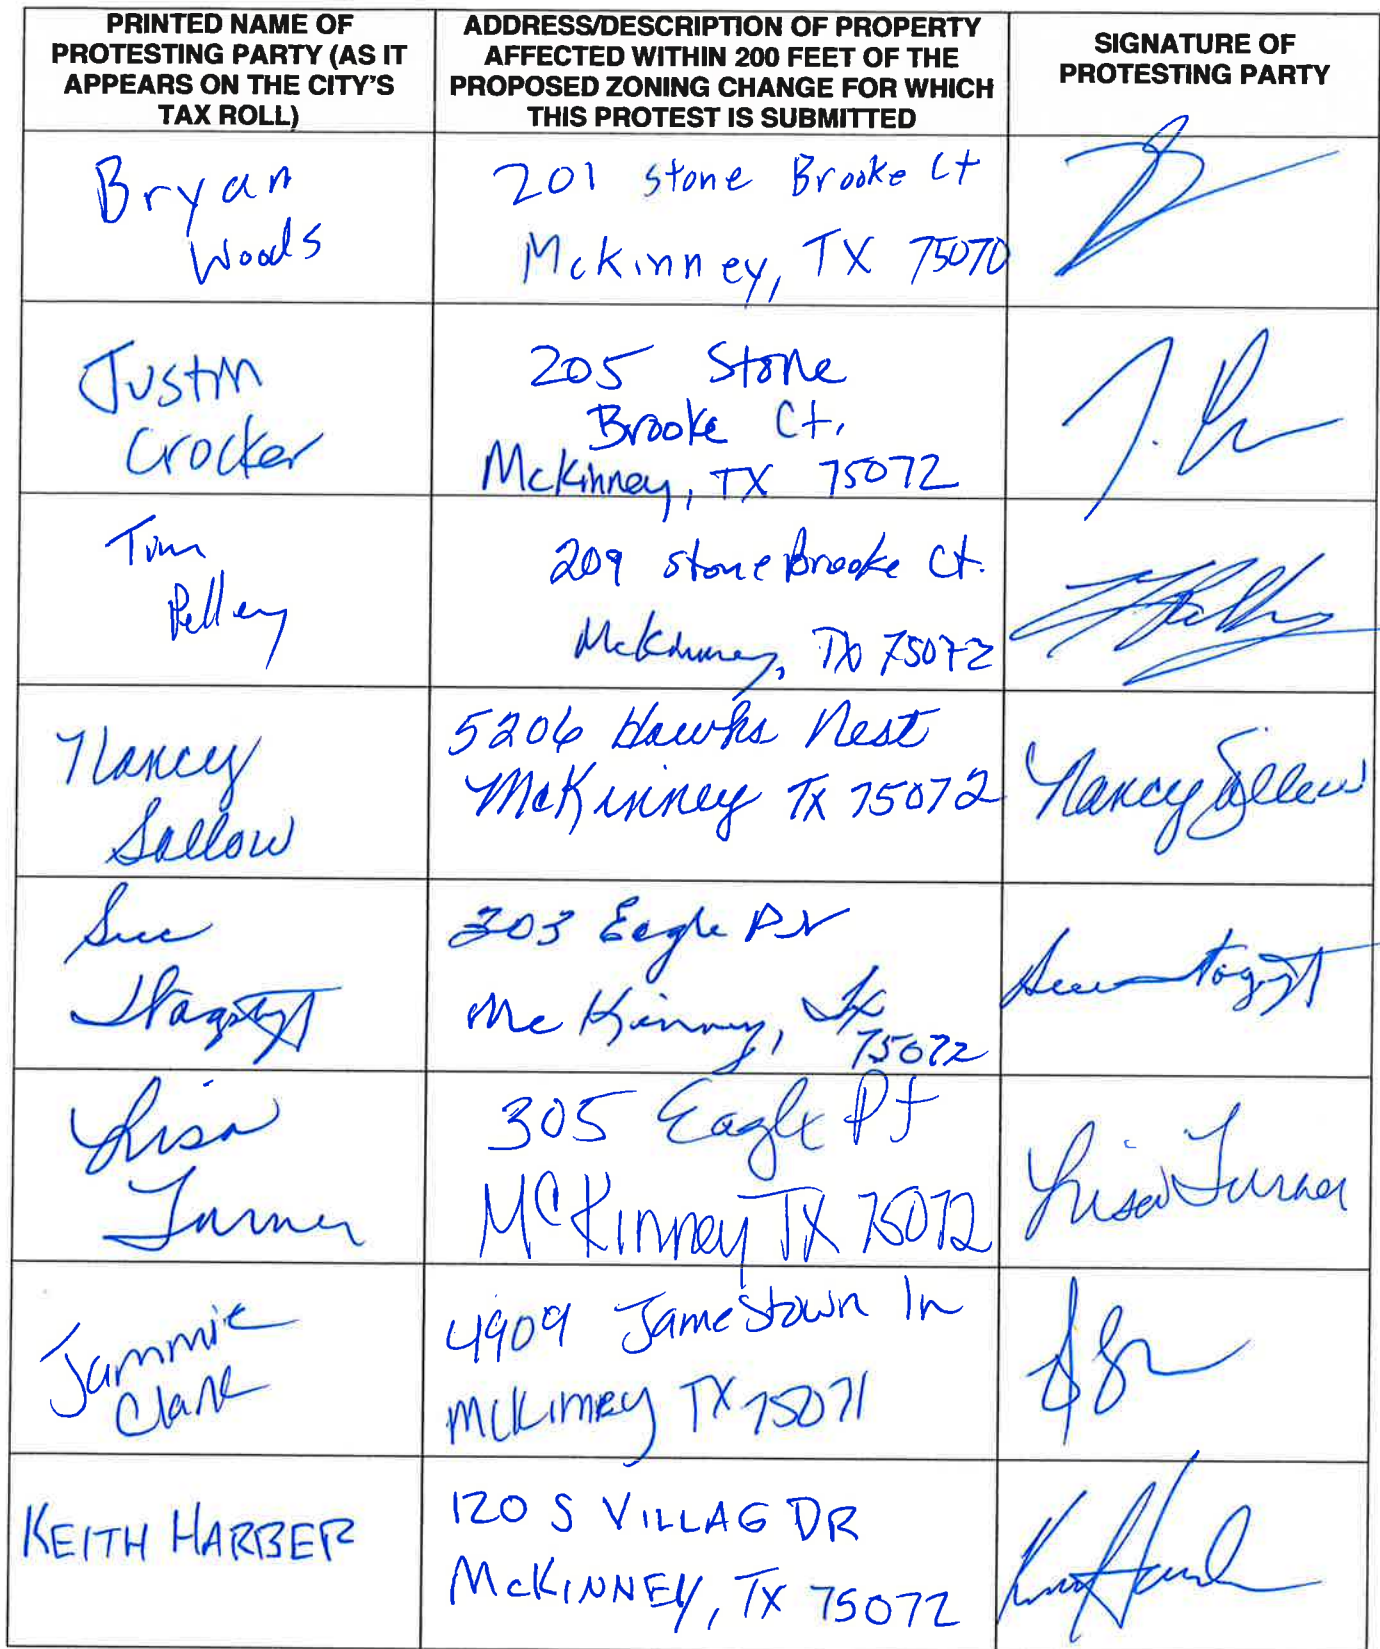 PRINTED NAME OF
PROTESTING PARTY (AS IT
APPEARS ON THE CITY'S
TAX ROLL)
ADDRESS/DESCRIPTION OF PROPERTY
AFFECTED WITHIN 200 FEET OF THE
PROPOSED ZONING CHANGE FOR WHICH
THIS PROTEST IS SUBMITTED
SIGNATURE OF
PROTESTING PARTY
Bryan
Woods
201 Stone Brooke Ct
McKinney, TX 75070
Justin
Crocker
205 Stone
Brooke Ct.
McKinney, TX 75072
Tim
Pelley
209 Stone Brooke Ct.
McKinney, TX 75072
Nancy
Sallow
5206 Hawks Nest
McKinney TX 75072
Nancy Sallow
Sue
303 Eagle Dr
McKinney, Tx
75072
Sue
Lisa
Turner
305 Eagle Pt
McKinney TX 75072
Lisa Turner
Jammie
Clark
4909 Jamestown ln
McKinney TX 75071
KEITH HARBER
120 S VILLAG DR
McKINNEY, TX 75072